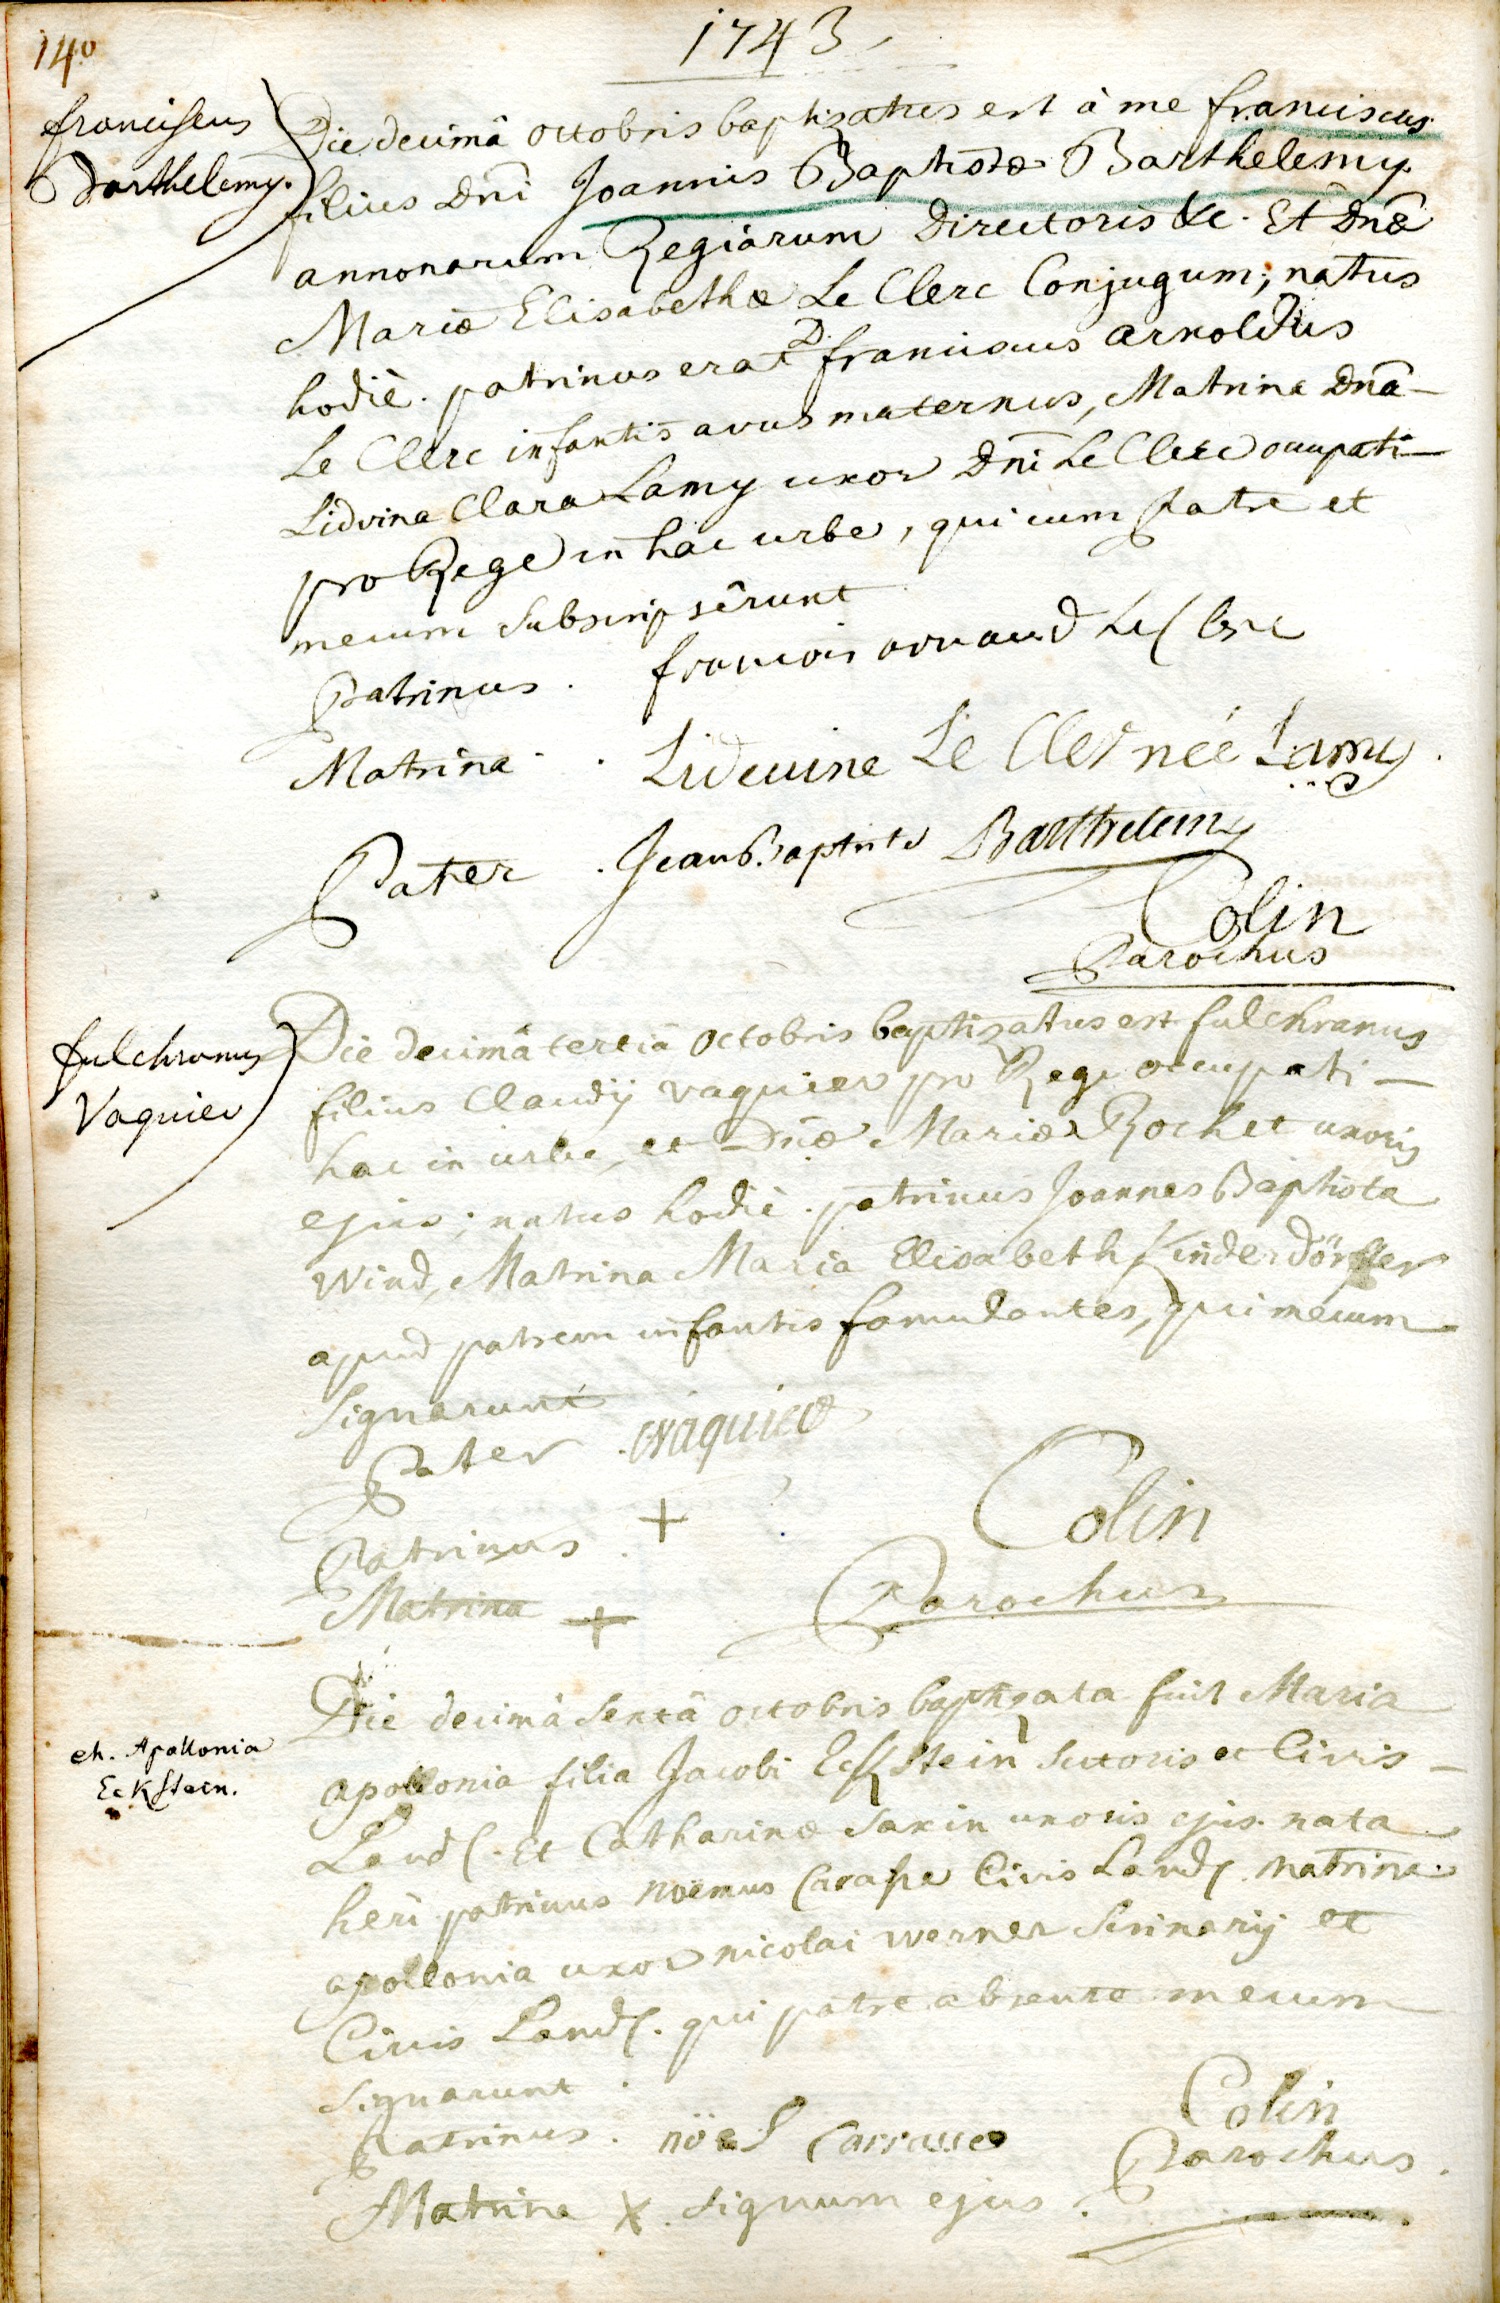 140
1743
franciscus
Barthelemy.
Die decimâ octobris baptizatus est à me franciscus
filius Dni Joannis Baptistæ Barthelemy
annonarum Regiarum Directoris &c. Et Dnæ
Mariæ Elisabethæ Le Clerc Conjugum; natus
hodiè. patrinus erat D. franciscus arnoldus
Le Clerc infantis avus maternus, Matrina Dna
Lidvina Clara Lamy uxor Dni Le Clerc occupati
pro Rege in hac urbe, qui cum Patre et
mecum subscripserunt
Patrinus. francois arnaud Le Clerc
Matrina. Lidewine Le Cler née Lamy.
Pater. Jean Baptiste Barthelemy
Colin
Parochus
fulchranus
Vaquier
Die decimâ tertiâ octobris baptizatus est fulchranus
filius Claudij vaquier pro Rege occupati
hac in urbe, et Dnæ Mariæ Rochet uxoris
ejus; natus hodiè. patrinus Joannes Baptista
Wind, Matrina Maria Elisabeth Kinderdörffer
apud patrem infantis famulantes, qui mecum
signarunt
Pater. vaquier
Patrinus. +
Matrina +
Colin
Parochus
eh. Apollonia
Eckstein.
Die decimâ sextâ octobris baptizata fuit Maria
apollonia filia Jacobi Eckstein sutoris et Civis
Land. Et Catharinæ Saxin uxoris ejus. nata
heri patrinus Civis Land. Matrina
apollonia uxor nicolai werner Scrinarij et
Civis Land. qui patre absente mecum
signarunt.
Patrinus. nöel Carrasse
Matrina X. signum ejus.
Colin
Parochus.